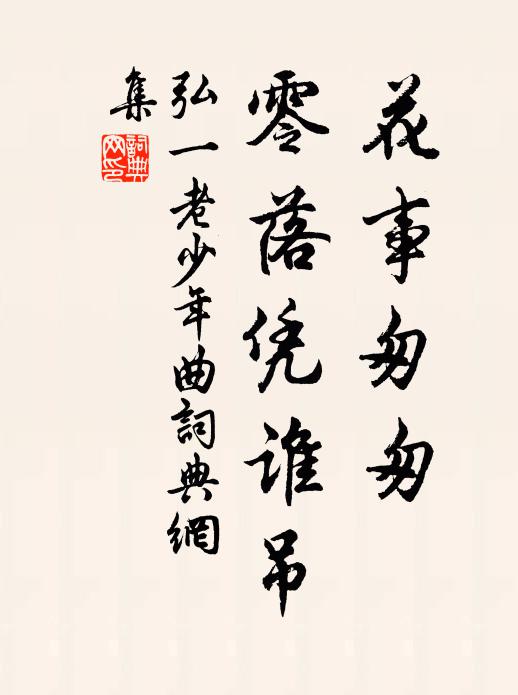 花事匆匆
零落凭谁吊
弘一老少年曲詞典網
集
詞典
网印